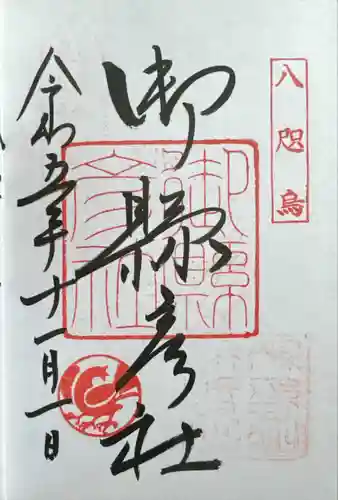 八咫烏
御縣彦社
令和五年十一月一日
御縣
彦社